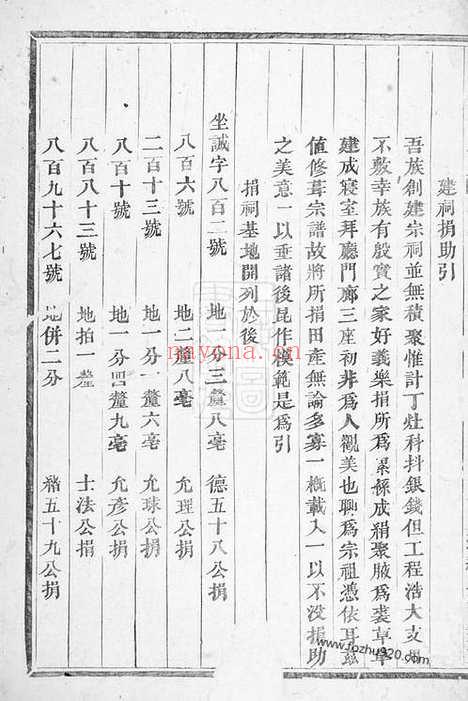 建祠捐助引
吾族創建宗祠並無積聚惟計丁灶科抖銀錢但工程浩大支
不敷幸族有殷實之家好義樂捐所爲累絲成絹聚腋爲裘草草
建成寢室拜廳門廊三座初非爲人觀美也聊爲宗祖憑依耳茲
值修葺宗譜故將所捐田產無論多寡一槪載入一以不没捐助
之美意一以垂諸後昆作模範是爲引
捐祠基地開列於後
坐誠字八百二號 地一分三釐八毫 德五十八公捐
八百六號 地二釐八毫 允理公捐
二百十三號 地一分一釐六毫 允球公捐
八百十號 地一分四釐九毫 允彥公捐
八百八十三號 地拍一釐 士法公捐
八百九十六七號 地併二分 五十九公捐
nayona.cn
www.fozhu920.com